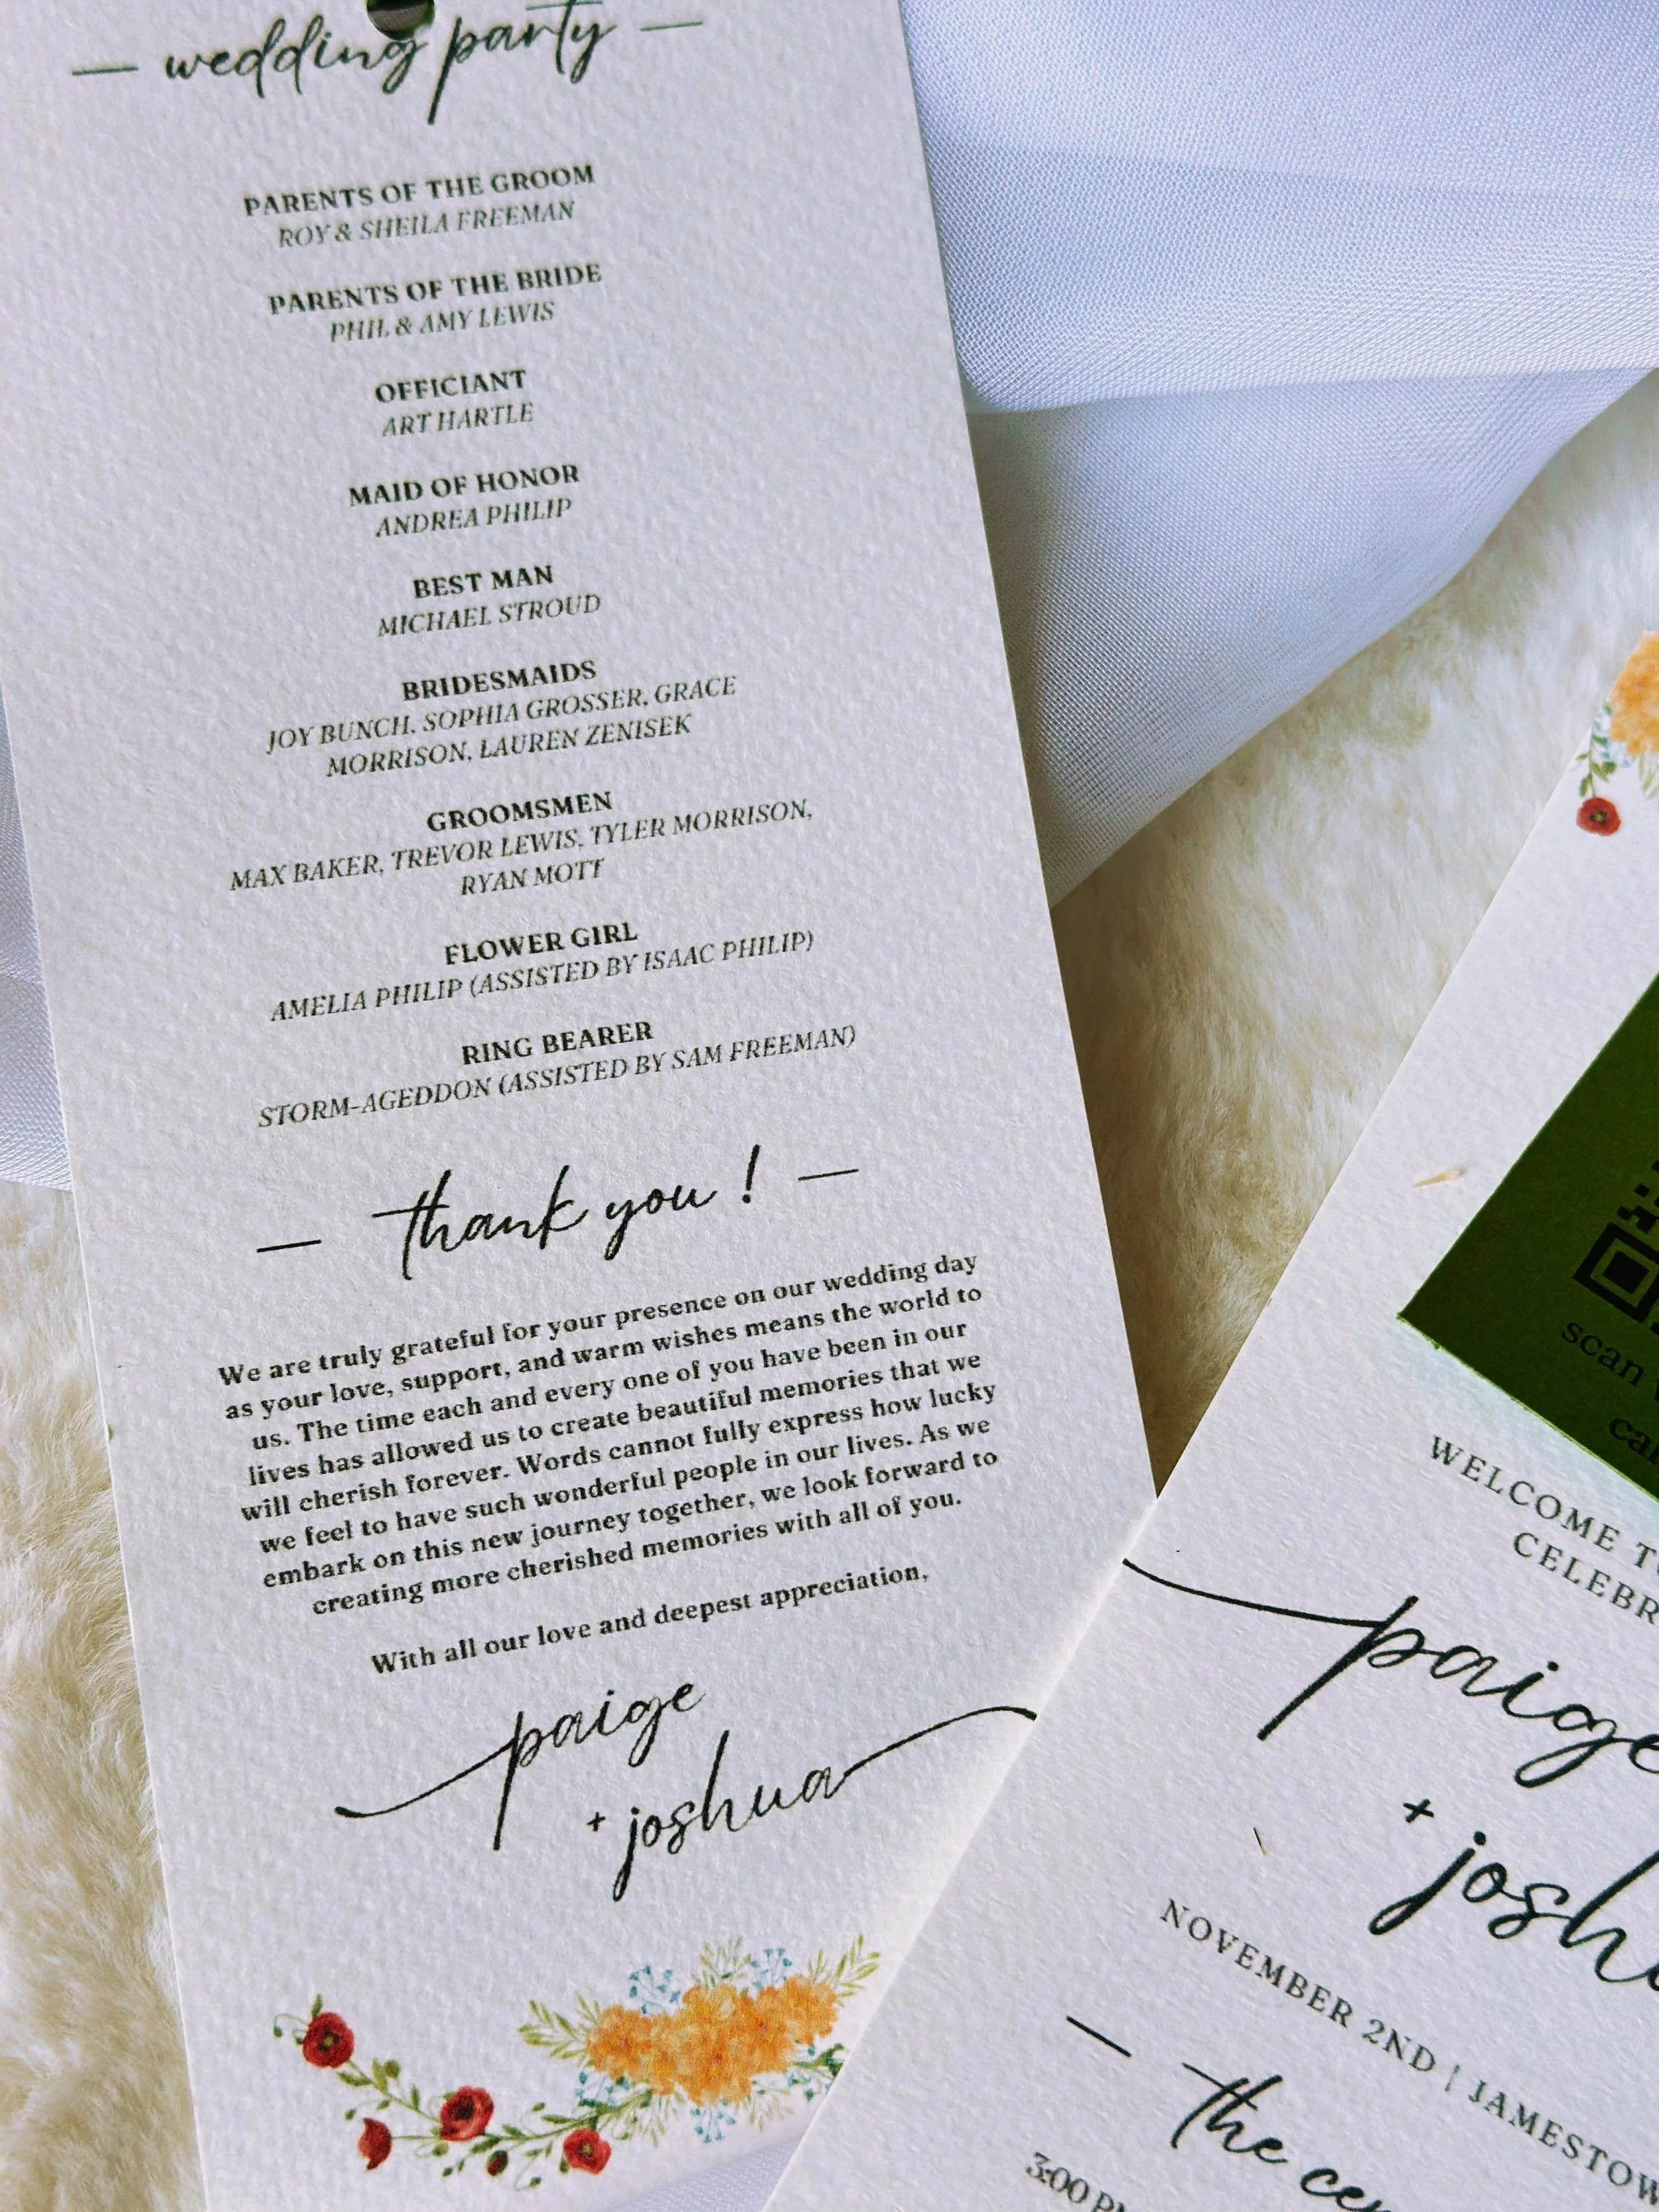 — wedding party —
PARENTS OF THE GROOM
ROY & SHEILA FREEMAN
PARENTS OF THE BRIDE
PHIL & AMY LEWIS
OFFICIANT
ART HARTLE
MAID OF HONOR
ANDREA PHILIP
BEST MAN
MICHAEL STROUD
BRIDESMAIDS
JOY BUNCH, SOPHIA GROSSER, GRACE
MORRISON, LAUREN ZENISEK
GROOMSMEN
MAX BAKER, TREVOR LEWIS, TYLER MORRISON,
RYAN MOTT
FLOWER GIRL
AMELIA PHILIP (ASSISTED BY ISAAC PHILIP)
RING BEARER
STORM-AGEDDON (ASSISTED BY SAM FREEMAN)
— thank you! —
We are truly grateful for your presence on our wedding day
as your love, support, and warm wishes means the world to
us. The time each and every one of you have been in our
lives has allowed us to create beautiful memories that we
will cherish forever. Words cannot fully express how lucky
we feel to have such wonderful people in our lives. As we
embark on this new journey together, we look forward to
creating more cherished memories with all of you.
With all our love and deepest appreciation,
paige
+ joshua
scan
WELCOME
CELEBR
paige
+ josh
NOVEMBER 2ND | JAMESTOW
— the
3:00